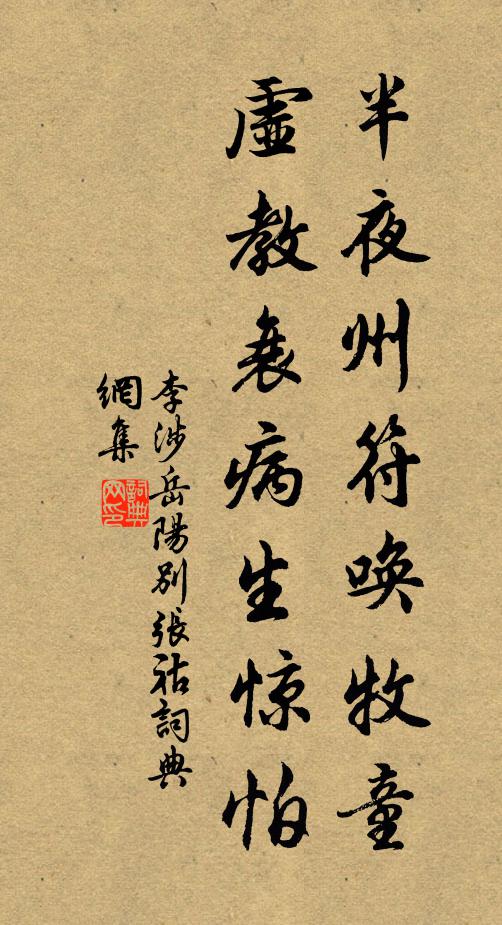 半夜州符唤牧童
虚教衰病生惊怕
李涉岳陽別張祜詞典
網集
詞典網印